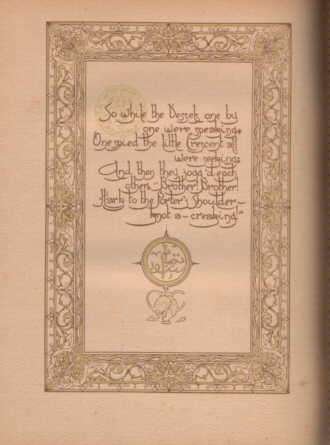 So while the Vessels one by
one were speaking,
One spied the little Crescent all
were seeking:
And then they jogg'd each
other, "Brother! Brother!
Hark to the Porter's Shoulder-
knot a-creaking!"